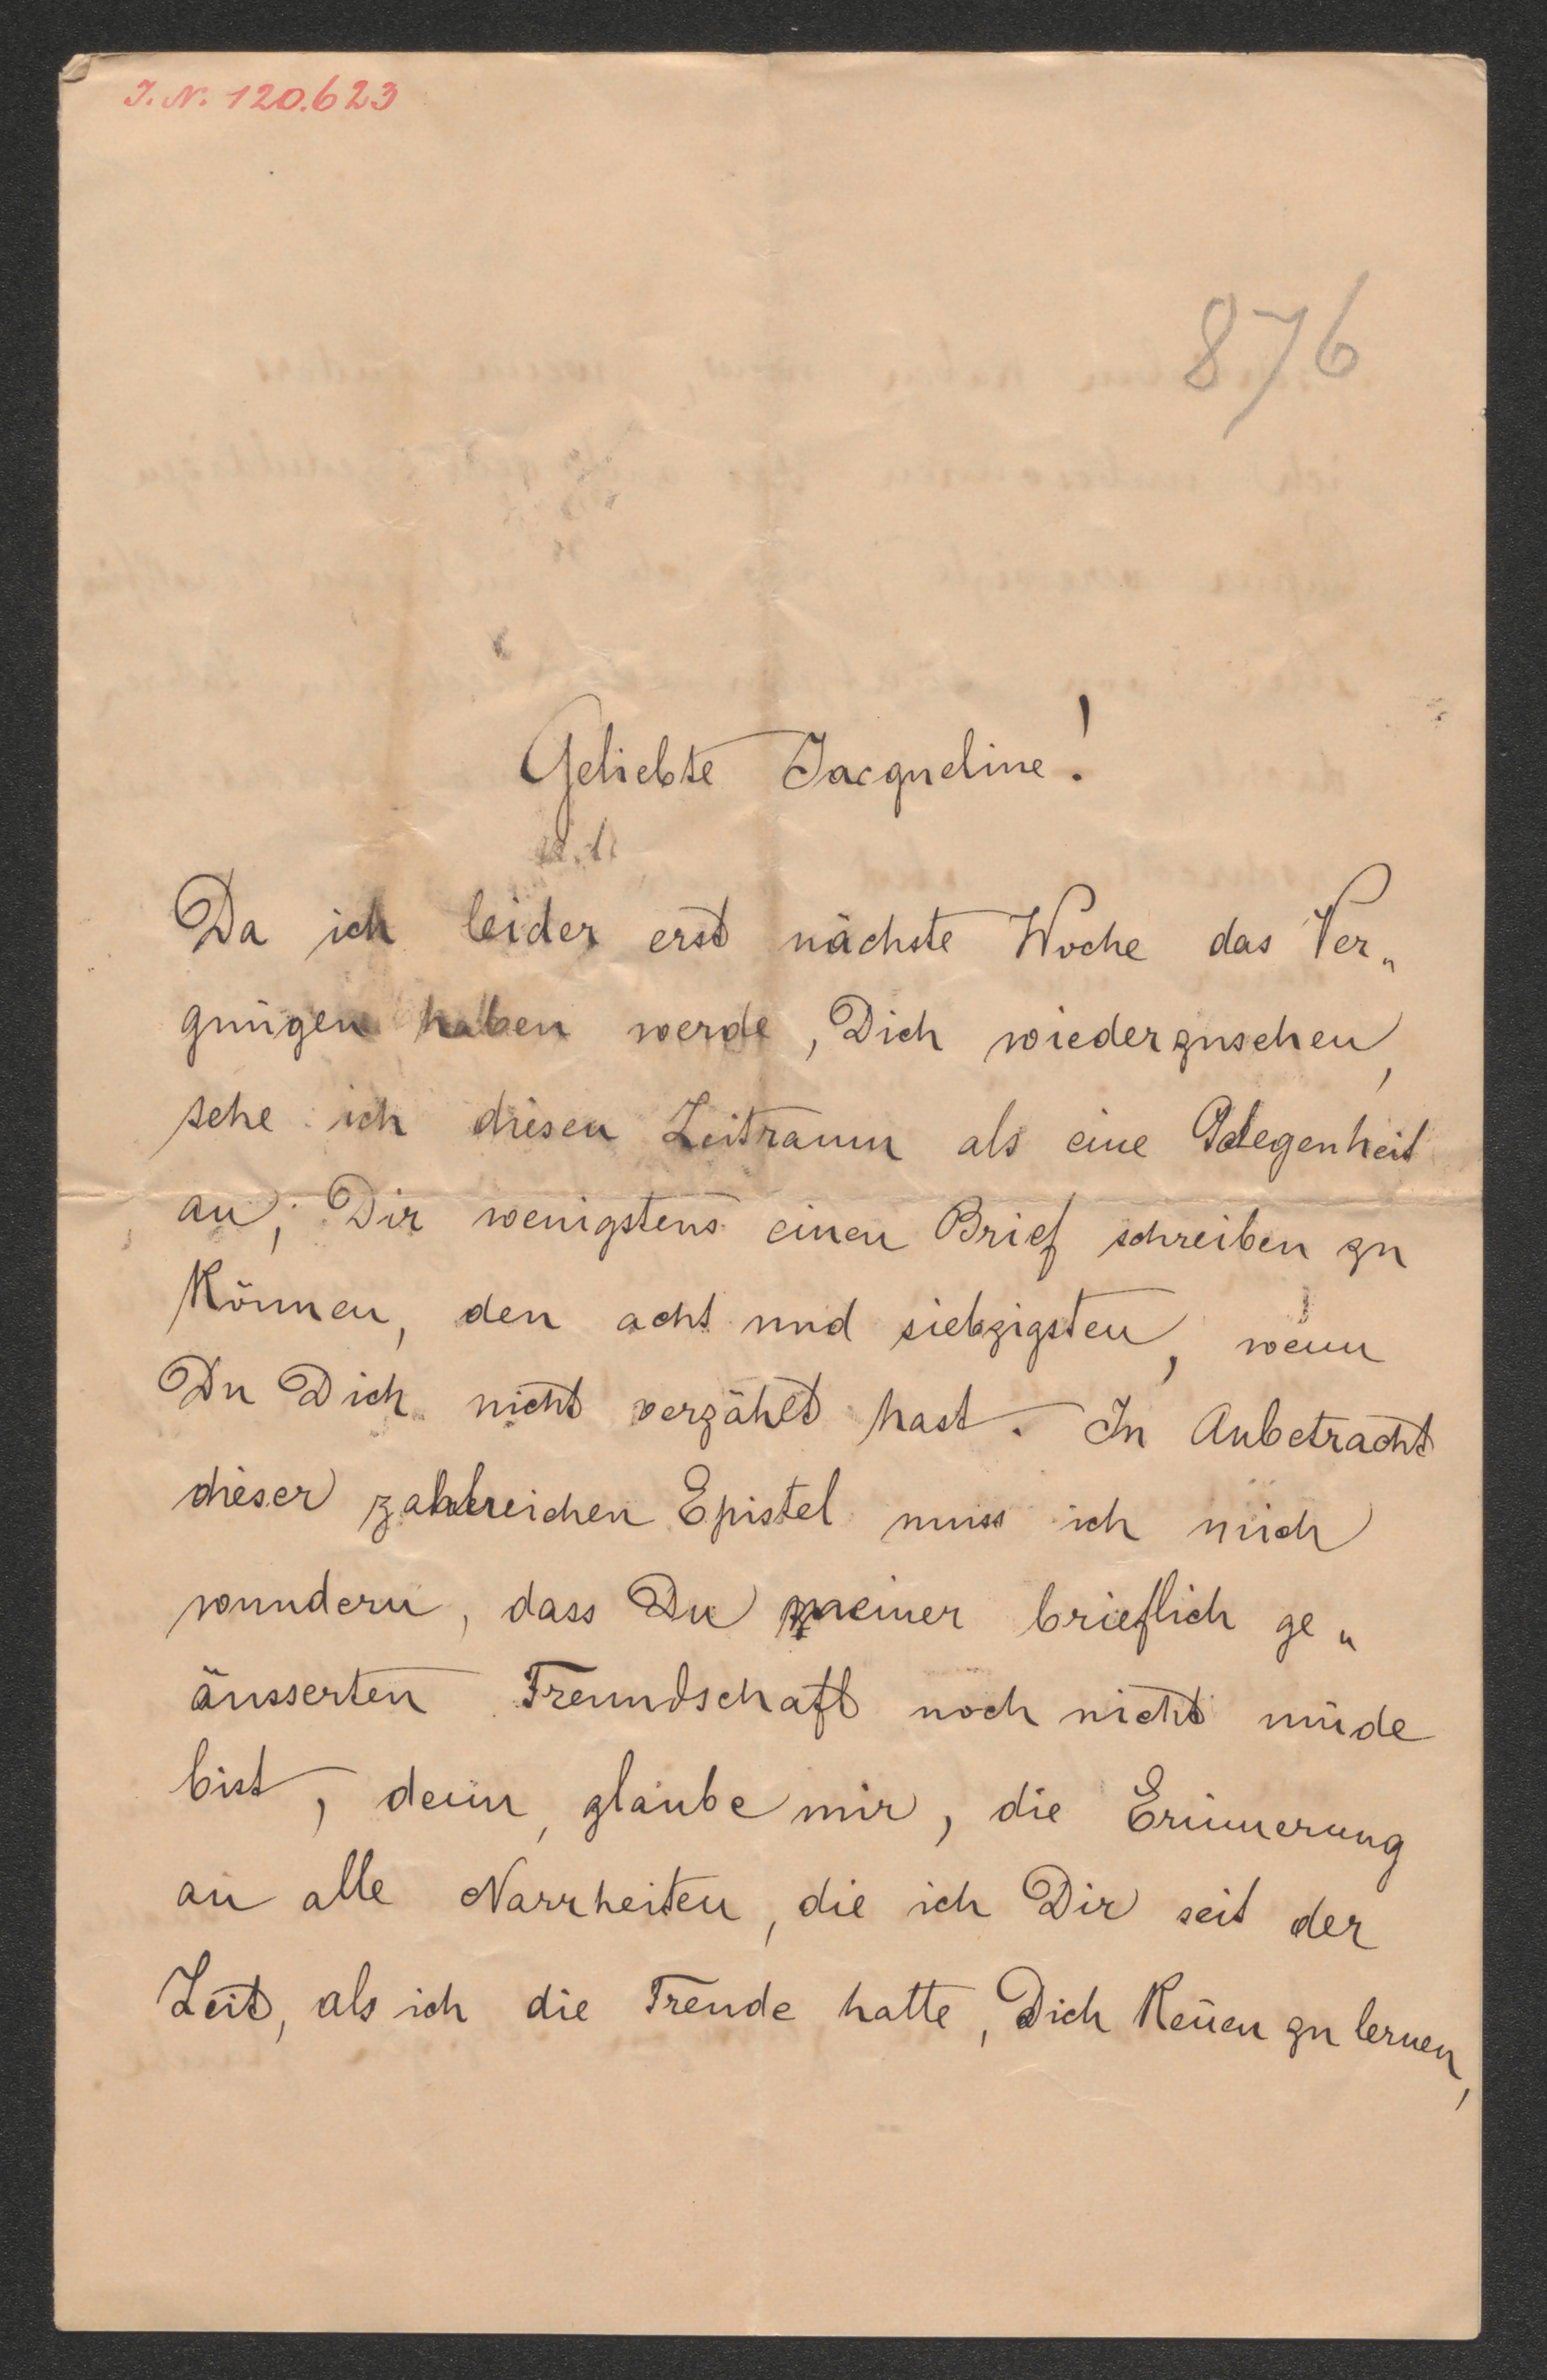 J. N. 120.623
876
Geliebte Jacqueline!
Da ich leider erst nächste Woche das Ver„
gnügen haben werde, Dich wiederzusehen,
sehe ich diesen Zeitraum als eine Gelegenheit
an, Dir wenigstens einen Brief schreiben zu
können, den acht und siebzigsten, wenn
Du Dich nicht verzählt hast. In Anbetracht
dieser zahlreichen Epistel muss ich mich
wundern, dass Du meiner brieflich ge„
äusserten Freundschaft noch nicht müde
bist, denn, glaube mir, die Erinnerung
an alle Narrheiten, die ich Dir seit der
Zeit, als ich die Freude hatte, Dich keñen zu lernen,